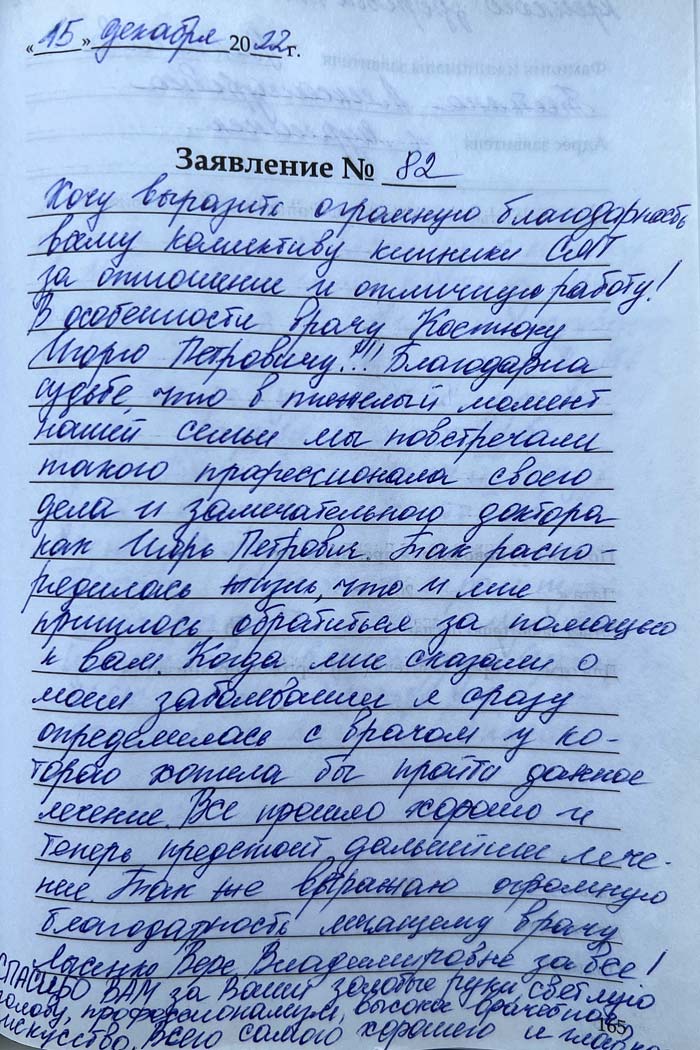 «15» декабря 2022 г.
Заявление № 82
Хочу выразить огромную благодарность
всему коллективу клиники СМТ
за отношение и отличную работу!
В особенности врачу Костюку
Игорю Петровичу!!! Благодарна
судьбе, что в тяжелый момент
нашей семьи мы повстречали
такого профессионала своего
дела и замечательного доктора
как Игорь Петрович. Так распо-
редилась жизнь, что и мне
пришлось обратиться за помощью
к вам. Когда мне сказали о
моем заболевании я сразу
определилась с врачом у ко-
торого хотела бы пройти данное
лечение. Все прошло хорошо и
теперь предстоит дальнейшее лече-
ние. Так же выражаю огромную
благодарность лечащему врачу
Лысенко Вере Владимировне за все!
СПАСИБО ВАМ за Ваши золотые руки светлую
голову, профессионализм, высокое врачебное
искусство. Всего самого хорошего и
165